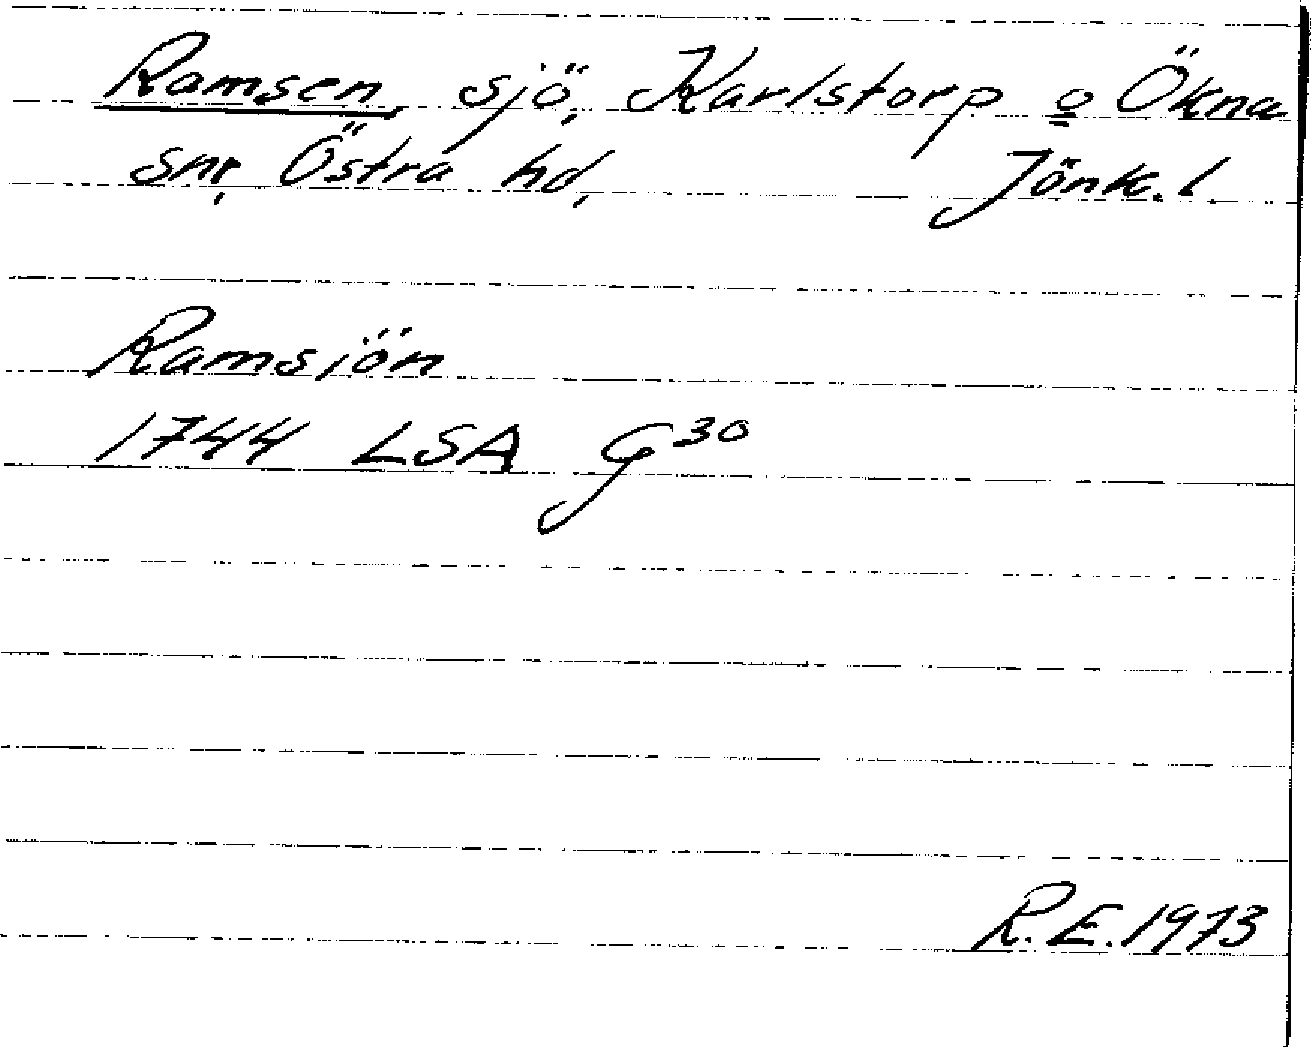 Ramsen, sjö, Karlstorp o Ökna
snr, Östra hd, Jönk. l.
Ramsjön
1744 LSA G 30
R.E. 1973